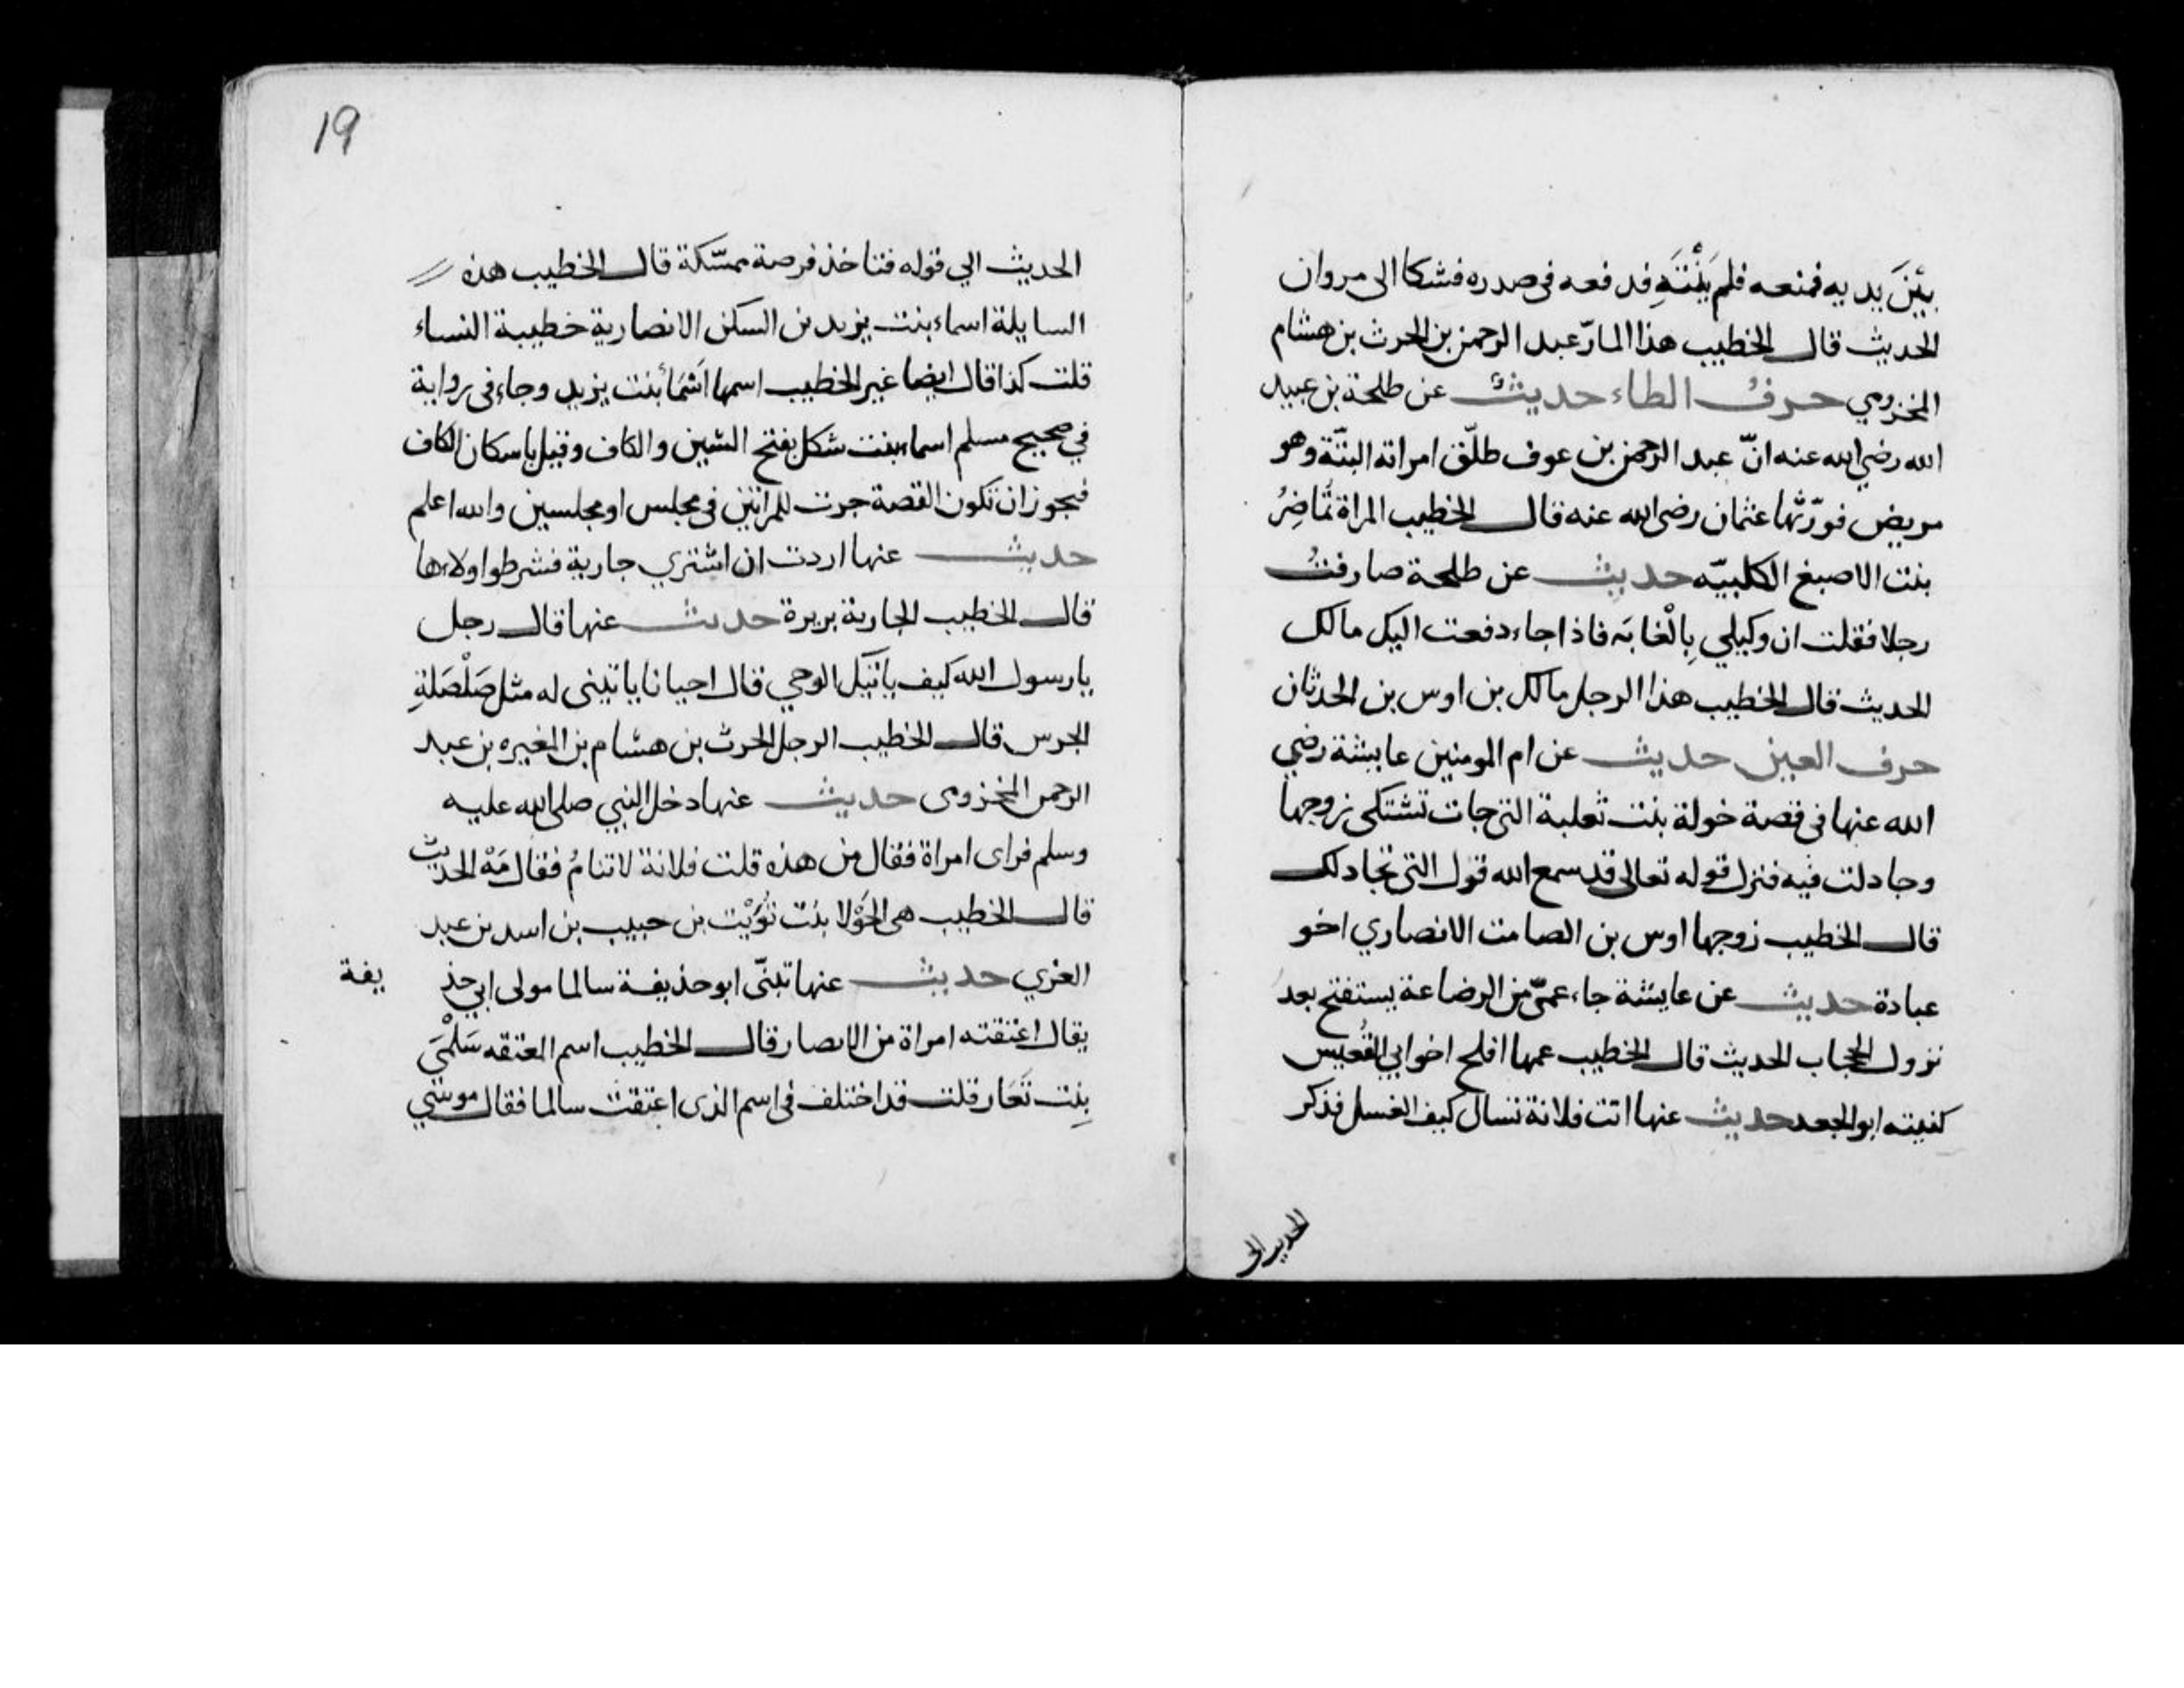 بَيْنَ يديه فمنعه فلم يَنْتَهِ فدفعه فى صدره فشكا الى مروان
الحديث قال الخطيب هذا المارّ عبد الرحمن بن الحرث بن هشام
المخزومي حرفُ الطاء حديثُ عن طلحة بن عبيد
الله رضي الله عنه انّ عبد الرحمن بن عوف طلّق امراته البتّة وهو
مريض فورّثها عثمان رضى الله عنه قال الخطيب المراة تُمَاضِرُ
بنت الاصبغ الكلبيّه حديث عن طلحة صارفتُ
رجلا فقلت ان وكيلي بِالْغابَه فاذا جاء دفعت اليك مالك
الحديث قال الخطيب هذا الرجل مالك بن اوس بن الحدثان
حرف العين حديث عن ام المومنين عايشة رضي
الله عنها فى قصة خولة بنت ثعلبة التى جات تشتكى زوجها
وجادلت فيه فنزل قوله تعالى قد سمع الله قول التى تجادلك
قال الخطيب زوجها اوس بن الصامت الانصاري اخو
عبادة حديث عن عايشة جاء عمّى من الرضاعة يستفتح بعد
نزول الحجاب الحديث قال الخطيب عمها افلح اخو ابي القُعيس
كنيته ابو الجعد حديث عنها اتت فلانة تسال كيف الغسل فذكر
الحديث الى
19
الحديث الي قوله فتاخذ فرصة ممسّكة قال الخطيب هذه
السايلة اسماء بنت يزيد بن السكن الانصارية خطيبة النساء
قلت كذا قال ايضا غير الخطيب اسمها اَسْمَاُ بنت يزيد وجاء فى رواية
في صحيح مسلم اسماء بنت شكل بفتح الشين والكاف وقيل باسكان الكاف
فيجوز ان تكون القصة جرت للمراتين فى مجلس او مجلسين والله اعلم
حديث عنها اردت ان اشتري جارية فشرطوا ولاءها
قال الخطيب الجارية بريرة حديث عنها قال رجل
يا رسول الله كيف ياتيك الوحي قال احيانا ياتينى له مثل صَلْصَلةِ
الجرس قال الخطيب الرجل الحرث بن هشام بن المغيره بن عبد
الرحمن المخزومى حديث عنها دخل النبي صلى الله عليه
وسلم فراى امراة فقال من هذه قلت فلانة لا تنامُ فقال مَهْ الحديث
قال الخطيب هى الحَوْلا بنت تُوَيْت بن حبيب بن اسد بن عبد
العزي حديث عنها تبنّى ابو حذيفة سالما مولى ابي حذ يفة
يقال اعتقته امراة من الانصار قال الخطيب اسم المعتقه سَلْمَى
بِنت تَعَار قلت قد اختلف فى اسم الذى اعتقت سالما فقال موسَي